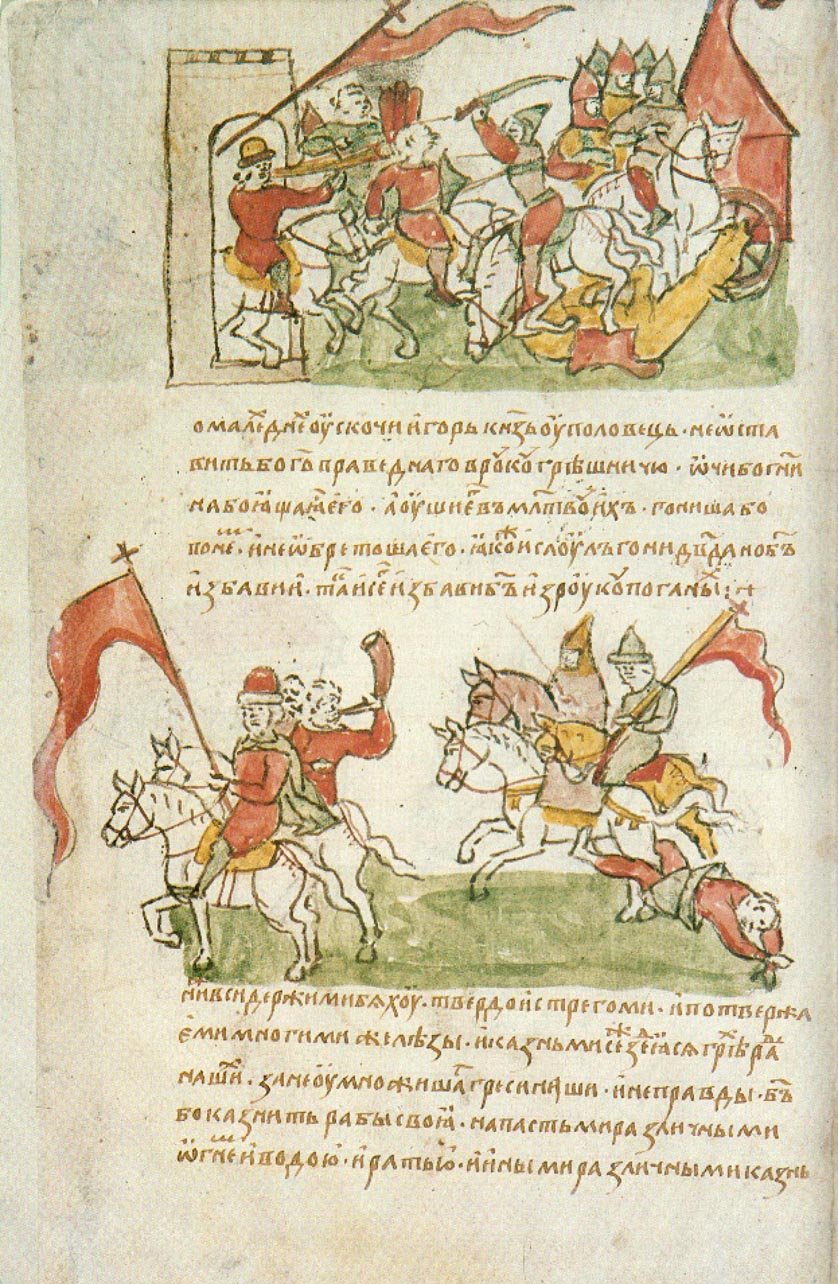 о малехъ д҃нехъ оускочи и҆горь кнѧзь оу половець · не ѡста
вить бо г҃ъ праведнаго в роукоу грѣшничю · ѡчи бо г҃ни
на боѧщаѧсѧ е҆го · а оуши е҆го въ м҃лтвоу и҆хъ · гониша бо
по не͏мь · и҆ не ѡбретоша е҆го · ꙗ҆ко и҆ слоулъ гони д҃вда но б҃ъ
и҆збави и҆ · тако и҆ сего и҆збави б҃ъ и҆з роукоу поганых :·
ни вси держими бѧхоу · твердо и҆ стрегоми · и҆ потвержа
е҆ми многими желѣзы · и҆ казньми
наши · зане оумножишасѧ греси наши · и҆ неправды · б҃ъ
бо казнить рабы своꙗ҆ · напастьми различными
ѡгнемь и҆ водою · и҆ ратью · и҆ и҆ными различными казнь